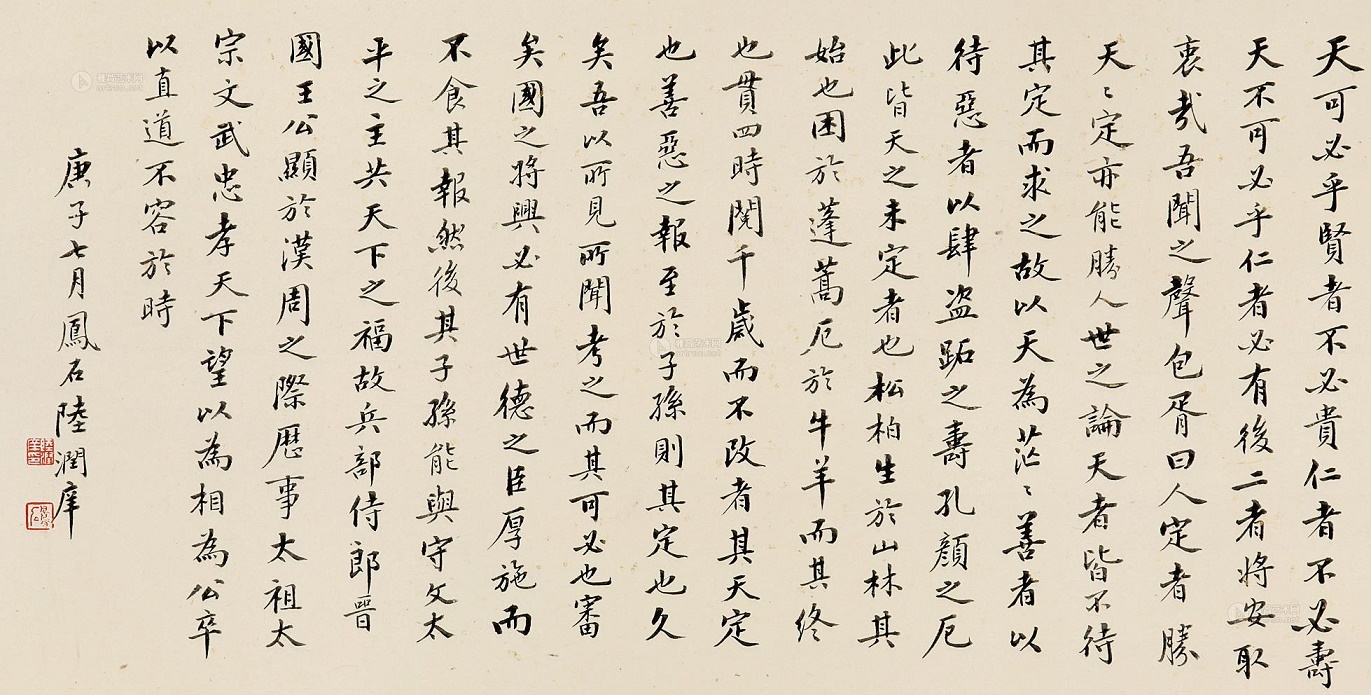 天可必乎賢者不必貴仁者不必壽
天不可必乎仁者必有後二者將安取
衷哉吾聞之聲包胥曰人定者勝
天〻定亦能勝人世之論天者皆不待
其定而求之故以天為茫〻善者以
待惡者以肆盜跖之壽孔顏之厄
此皆天之未定者也松柏生於山林其
始也困於蓬蒿厄於牛羊而其終
也貫四時閱千歲而不改者其天定
也善惡之報至於子孫則其定也久
矣吾以所見所聞考之而其可必也審
矣國之將興必有世德之臣厚施而
不食其報然後其子孫能與守文太
平之主共天下之福故兵部侍郎晉
國王公顯於漢周之際歷事太祖太
宗文武忠孝天下望以為相為公卒
以直道不容於時
庚子七月鳳石陸潤庠